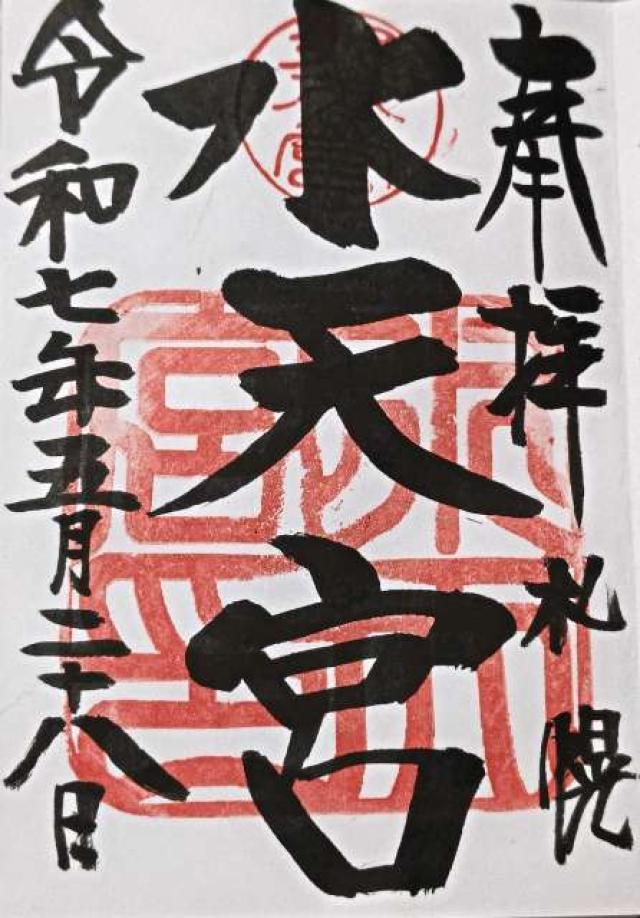 奉拝 札幌
水天宮
令和七年五月二十八日